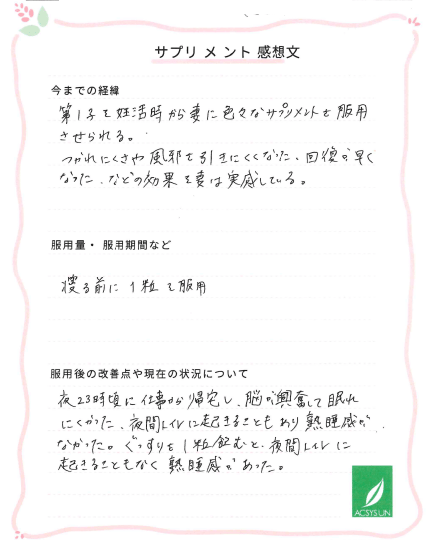 サプリメント感想文
今までの経緯
第1子を妊活時から妻に色々なサプリメントを服用
させられる。
つかれにくさや風邪を引きにくくなった、回復が早く
なった、などの効果を妻は実感している。
服用量・服用期間など
寝る前に1粒を服用
服用後の改善点や現在の状況について
夜23時頃に仕事から帰宅し、脳が興奮して眠れ
にくかった、夜間トイレに起きることもあり熟睡感が
なかった。ぐっすりを1粒飲むと、夜間トイレに
起きることもなく熟睡感があった。
ACSYSUN